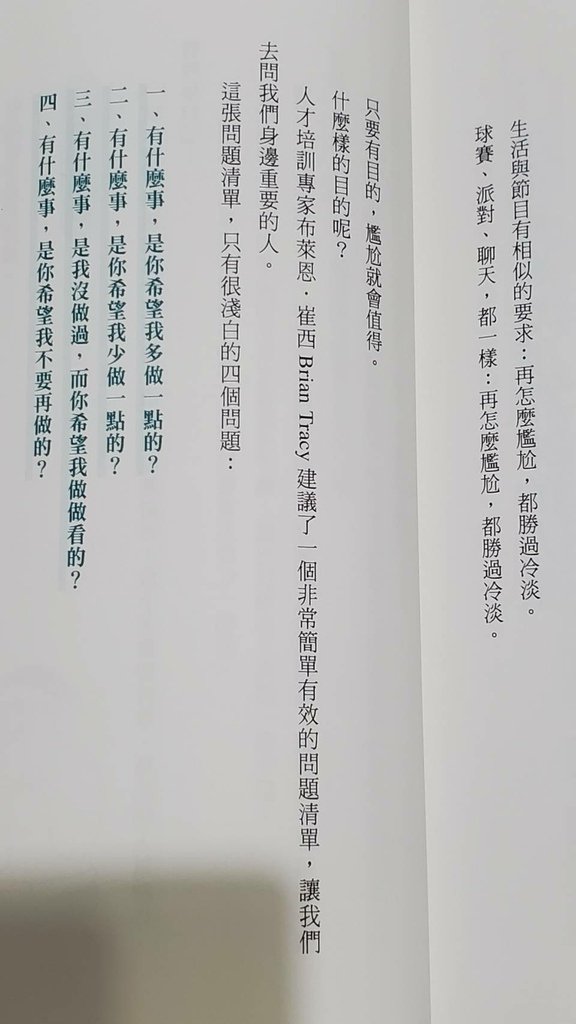 生活與節目有相似的要求：再怎麼尷尬，都勝過冷淡。
球賽、派對、聊天，都一樣：再怎麼尷尬，都勝過冷淡。
只要有目的，尷尬就會值得。
什麼樣的目的呢？
人才培訓專家布萊恩．崔西 Brian Tracy 建議了一個非常簡單有效的問題清單，讓我們
去問我們身邊重要的人。
這張問題清單，只有很淺白的四個問題：
一、有什麼事，是你希望我多做一點的？
二、有什麼事，是你希望我少做一點的？
三、有什麼事，是我沒做過，而你希望我做做看的？
四、有什麼事，是你希望我不要再做的？